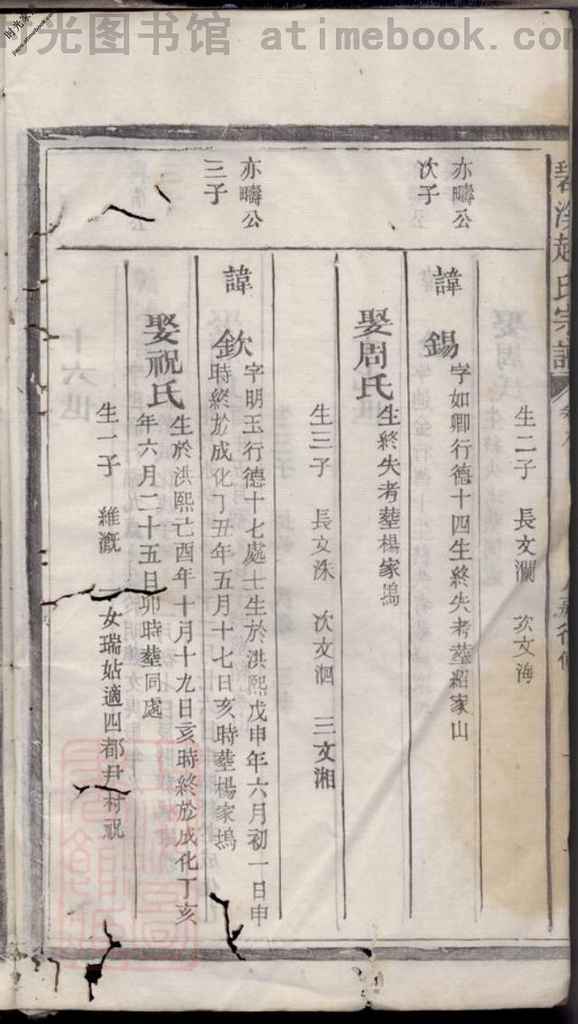 时光图书馆 atimebook.com
溪趙氏宗譜
生二子 長文瀾 次文海
亦疇公
次子
諱錫 字如卿行德十四生終失考塟紹家山
娶周氏 生終失考塟楊家塢
生三子 長文洙 次文泗 三文湘
亦疇公
三子
諱欽 字明玉行德十七處士生於洪熙戊申年六月初一日申
時終於成化丁丑年五月十七日亥時塟楊家塢
娶祝氏 生於洪熙己酉年十月十九日亥時終於成化丁亥
年六月二十五日卯時塟同處
生一子 維溉 一女瑞姑適四都尹村祝
十六世